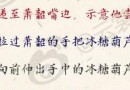 递至萧韶嘴边，示意他尝
拉过萧韶的手把冰糖葫芦
向前伸出手中的冰糖葫芦